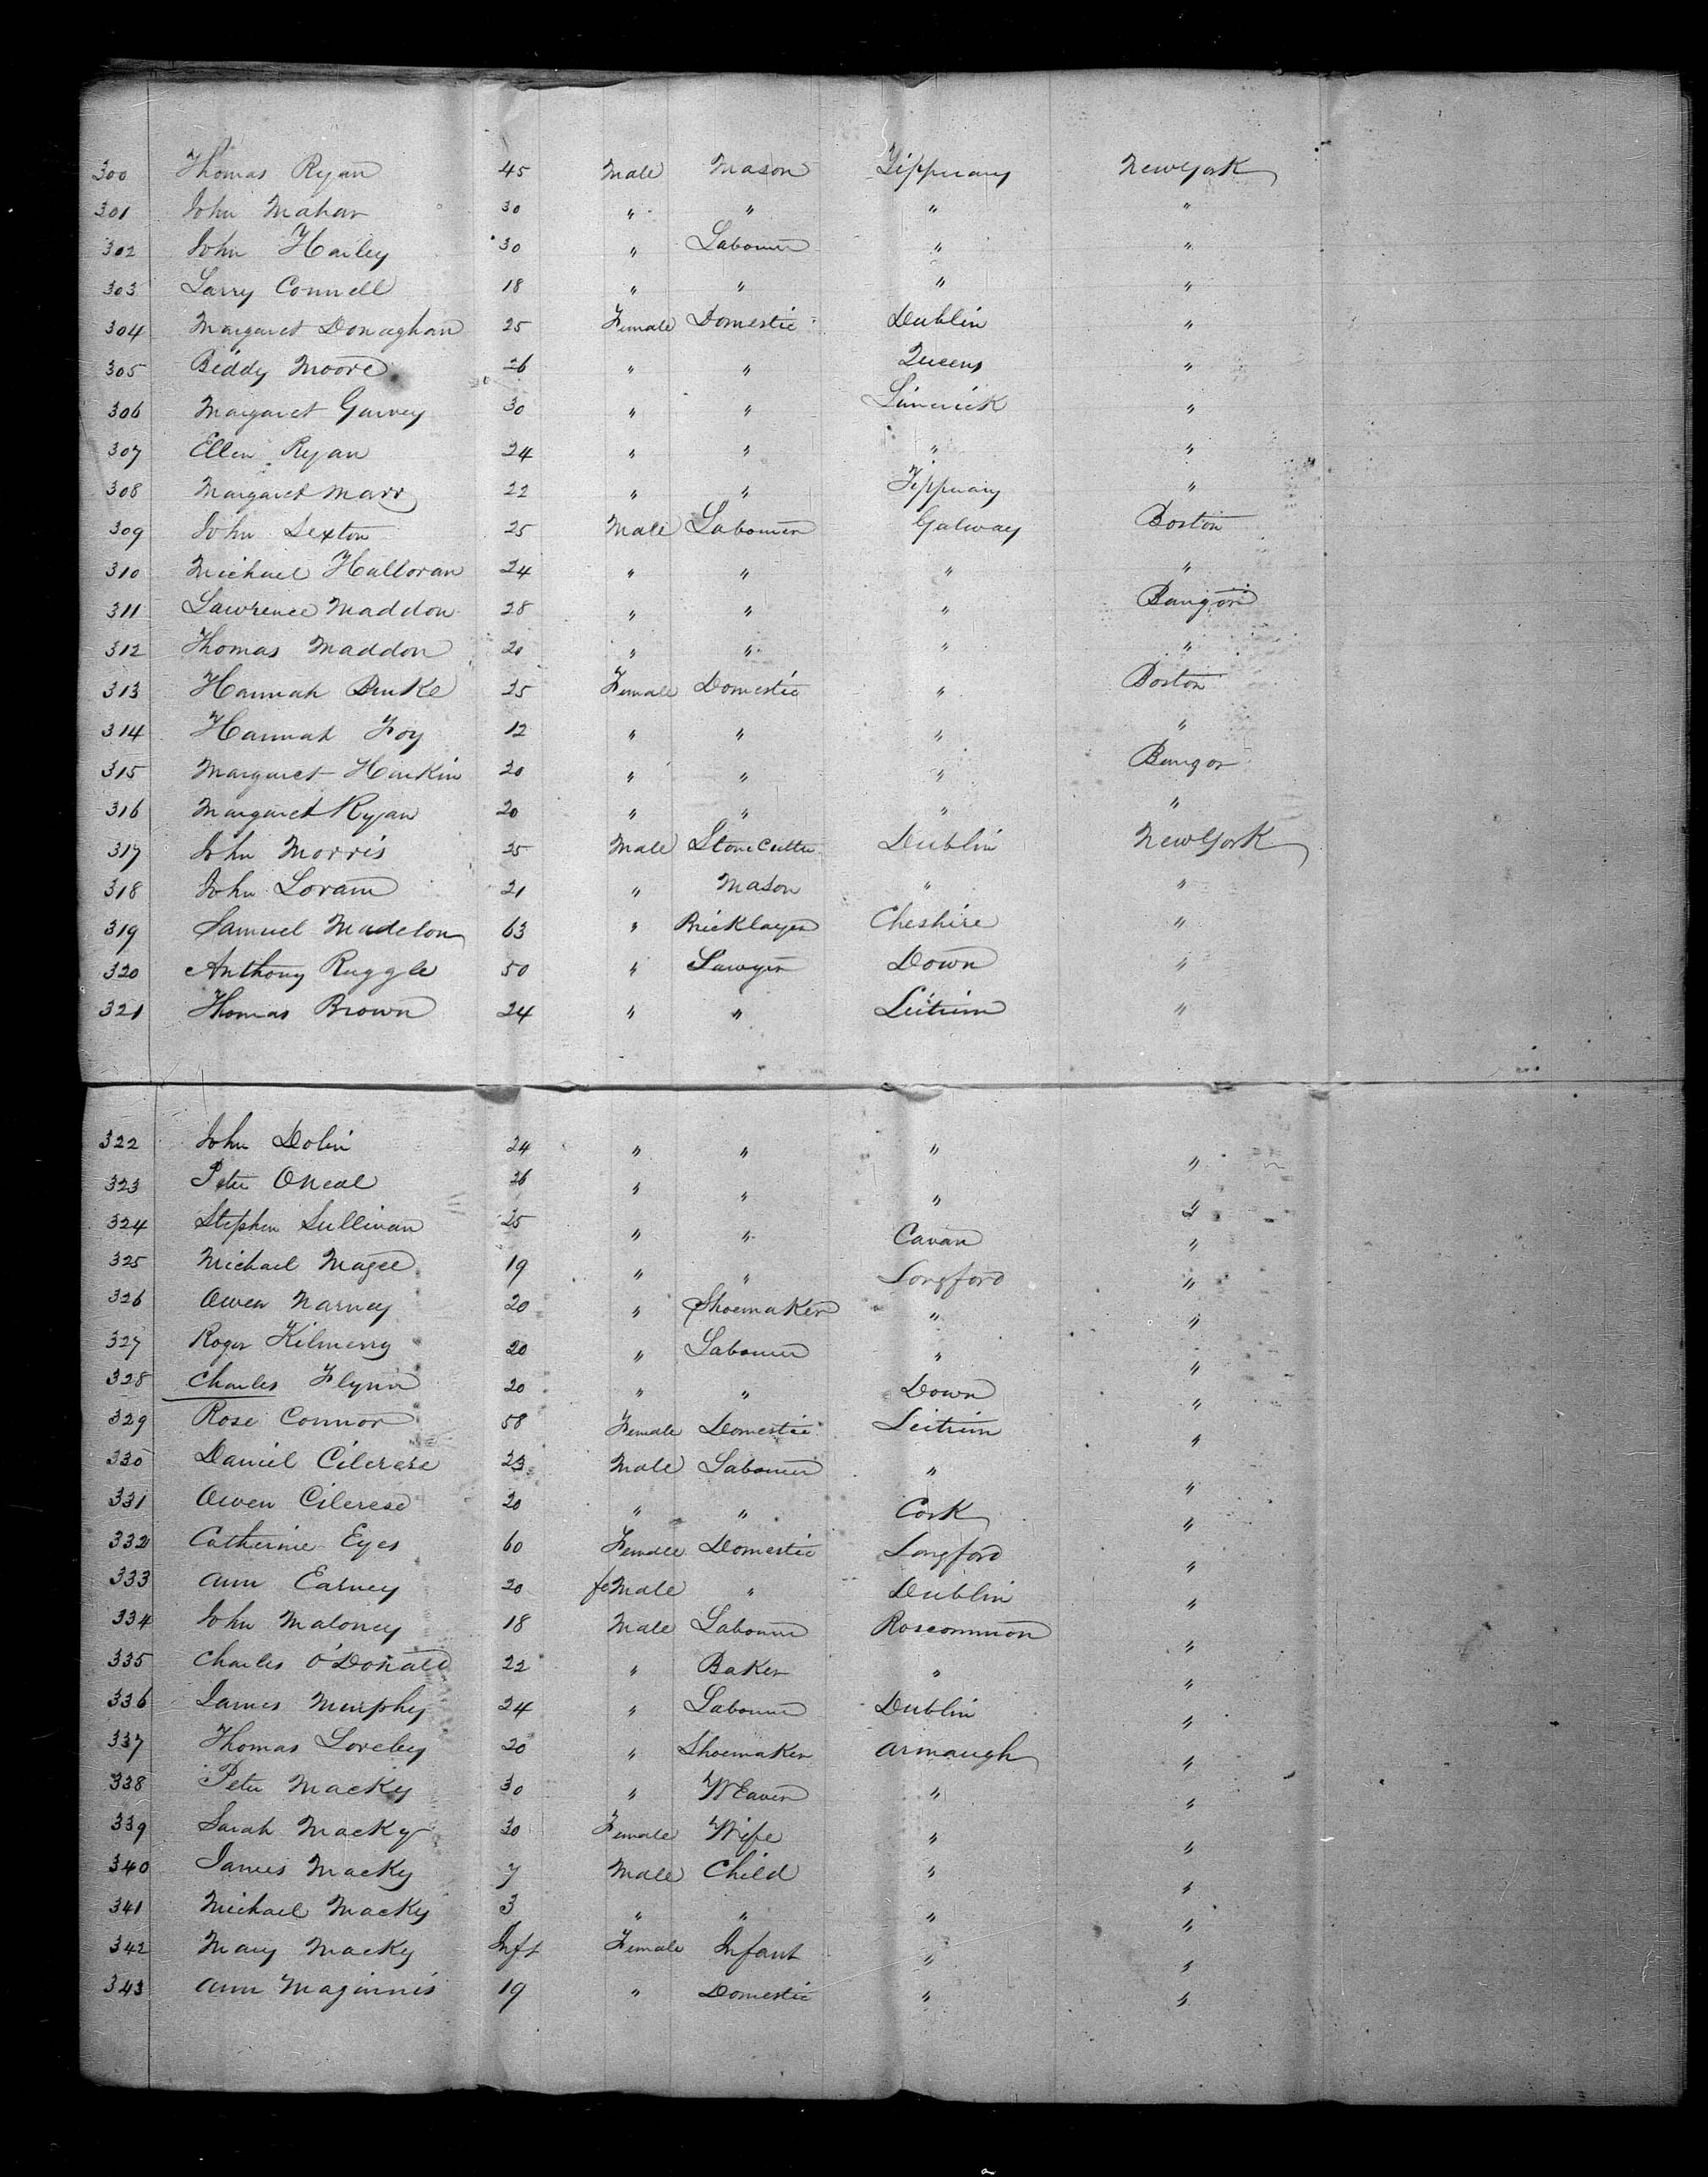 300 Thomas Ryan 45 Male Mason Tipperary New York
301 John Mahar 30 " " " "
302 John Harley 30 " Labourer " "
303 Larry Connell 18 " " " "
304 Margaret Donaghan 25 Female Domestic Dublin "
305 Biddy Moore 26 " " Queens "
306 Margaret Garvey 30 " " Limerick "
307 Ellen Ryan 24 " " " "
308 Margaret Marr 22 " " Tipperary "
309 John Sexton 25 Male Labourer Galway Boston
310 Michael Halloran 24 " " " "
311 Lawrence Maddon 28 " " " Bangor
312 Thomas Maddon 20 " " " "
313 Hannah Burke 25 Female Domestic " Boston
314 Hannah Foy 12 " " " "
315 Margaret Harkin 20 " " " Bangor
316 Margaret Ryan 20 " " " "
317 John Morris 25 Male Stone Cutter Dublin New York
318 John Loram 21 " Mason " "
319 Samuel Madelon 63 " Bricklayer Cheshire "
320 Anthony Ruggle 50 " Sawyer Down "
321 Thomas Brown 24 " " Leitrim "
322 John Dolin 24 " " " "
323 Peter ONeal 26 " " " "
324 Stephen Sullivan 25 " " Cavan "
325 Michael Magee 19 " " Longford "
326 Owen Narney 20 " Shoemaker " "
327 Roger Kilmerry 20 " Labourer " "
328 Charles Flynn 20 " " Down "
329 Rose Connor 58 Female Domestic Leitrim "
330 Daniel Cilerese 23 Male Labourer " "
331 Owen Cilerese 20 " " Cork "
332 Catherine Eyes 60 Female Domestic Longford "
333 Ann Earney 20 feMale " Dublin "
334 John Maloney 18 Male Labourer Roscommon "
335 Charles O'Donald 22 " Baker " "
336 James Murphy 24 " Labourer Dublin "
337 Thomas Loreley 20 " Shoemaker Armaugh "
338 Peter Macky 30 " WEaver " "
339 Sarah Macky 30 Female Wife " "
340 James Macky 7 Male Child " "
341 Michael Macky 3 " " " "
342 Mary Macky Inft Female Infant " "
343 Ann Maginnis 19 " Domestic " "